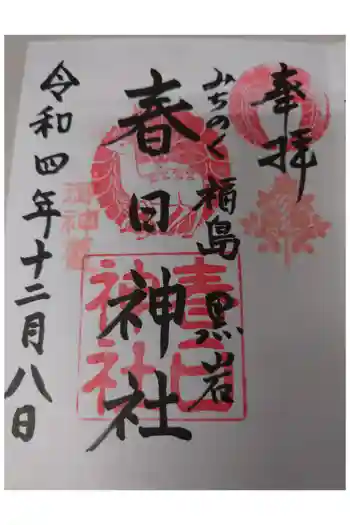 奉拝
みちのく福島黒岩
春日神社
春日神社
令和四年十二月八日